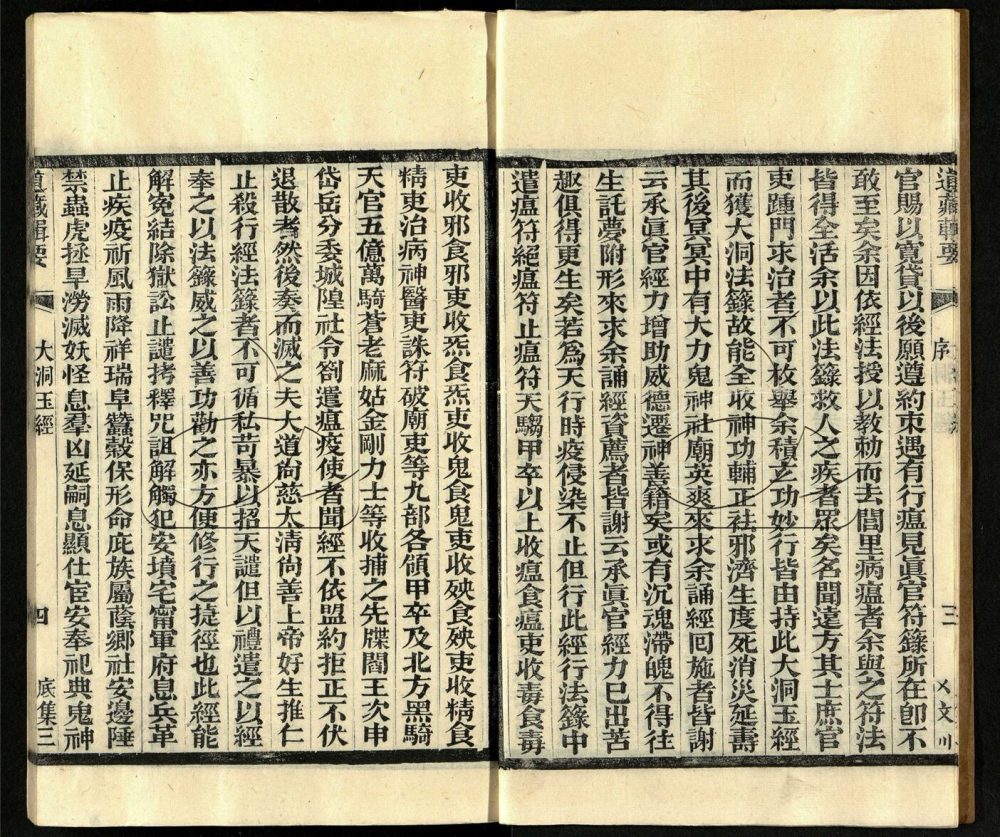 道藏輯要 序 三
官賜以寬貸以後願遵約束遇有行瘟見眞官符籙所在卽不
敢至矣余因依經法授以教勅而去閭里病瘟者余與之符法
皆得全活余以此法籙救人之疾者眾矣名聞遠方其士庶官
吏踵門求治者不可枚舉余積玄功妙行皆由持此大洞玉經
而獲大洞法籙故能全收神功輔正祛邪濟生度死消災延壽
其後冥冥中有大力鬼神社廟英爽來求余誦經囘施者皆謝
云承眞官經力增助威德遷神善籍矣或有沉魂滯魄不得往
生託夢附形來求余誦經資薦者皆謝云承眞官經力已出苦
趣俱得更生矣若爲天行時疫侵染不止但行此經行法籙中
遣瘟符絕瘟符止瘟符天騶甲卒以上收瘟食瘟吏收毒食毒
吏收邪食邪吏收炁食炁吏收鬼食鬼吏收殃食殃吏收精食
精吏治病神醫吏誅符破廟吏等九部各領甲卒及北方黑騎
天官五億萬騎蒼老麻姑金剛力士等收捕之先牒閻王次申
岱岳分委城隍社令劄遣瘟疫使者聞經不依盟約拒正不伏
退散者然後奏而滅之夫大道尙慈太淸尙善上帝好生推仁
止殺行經法籙者不可循私苛暴以招天譴但以禮遣之以經
奉之以法籙威之以善功勸之亦方便修行之捷徑也此經能
解冤結除獄訟止譴拷釋咒詛解觸犯安墳宅甯軍府息兵革
止疾疫祈風雨降祥瑞阜蠶穀保形命庇族屬蔭鄉社安邊陲
禁蟲虎拯旱澇滅妖怪息羣凶延嗣息顯仕宦安奉祀典鬼神
道藏輯要 大洞玉經 四 底集三